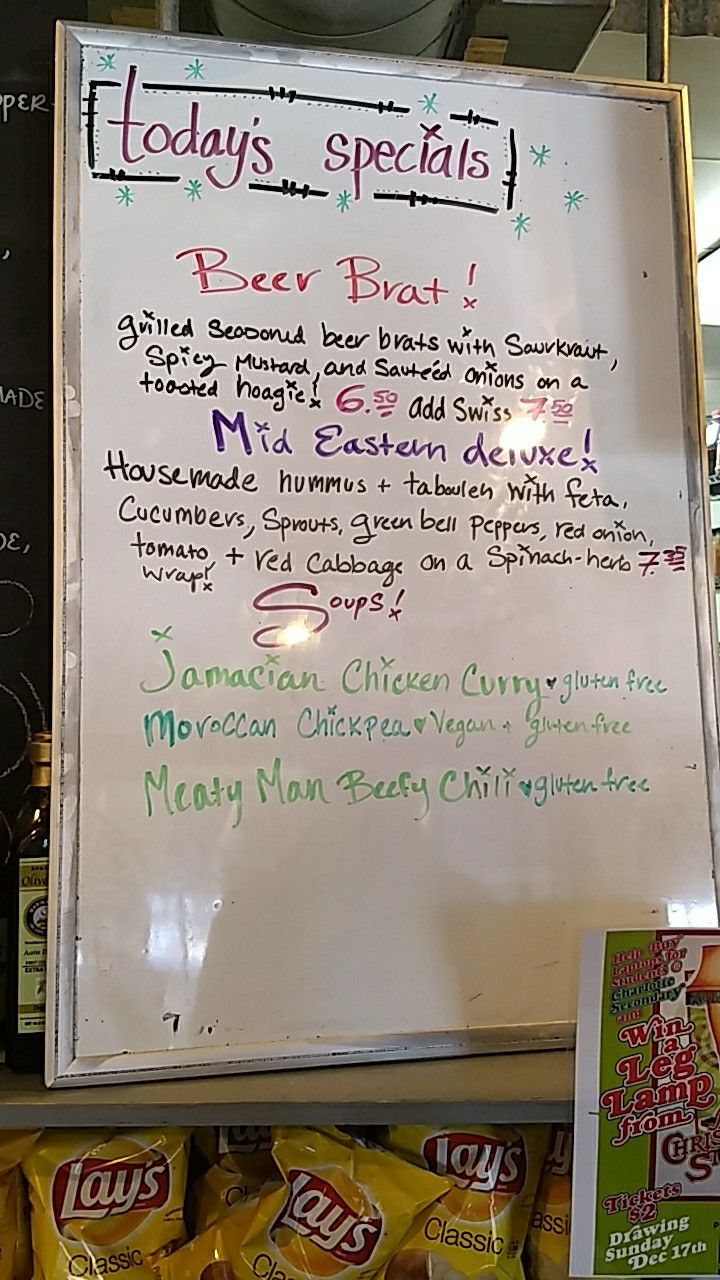 today's specials
Beer Brat!
grilled seasoned beer brats with Saurkraut,
Spicy Mustard, and Sauteéd onions on a
toasted hoagie! 6.50 add Swiss 7.50
Mid Eastern deluxe!
Housemade hummus + tabouleh with feta,
Cucumbers, Sprouts, green bell peppers, red onion,
tomato, + red Cabbage on a Spinach-herb 7.35
wrap!
Soups!
Jamacian Chicken Curry ♥ gluten free
Moroccan Chickpea ♥ Vegan + gluten free
Meaty Man Beefy Chili ♥ gluten free
PPER
ADE
DE,
Help Buy
Laptops for
Students @
Charlotte
Secondary
and
Win
a
Leg
Lamp
from
Tickets
$2
Drawing
Sunday
Dec 17th
Lay's
Classic
Lay's
Lay's
Classic